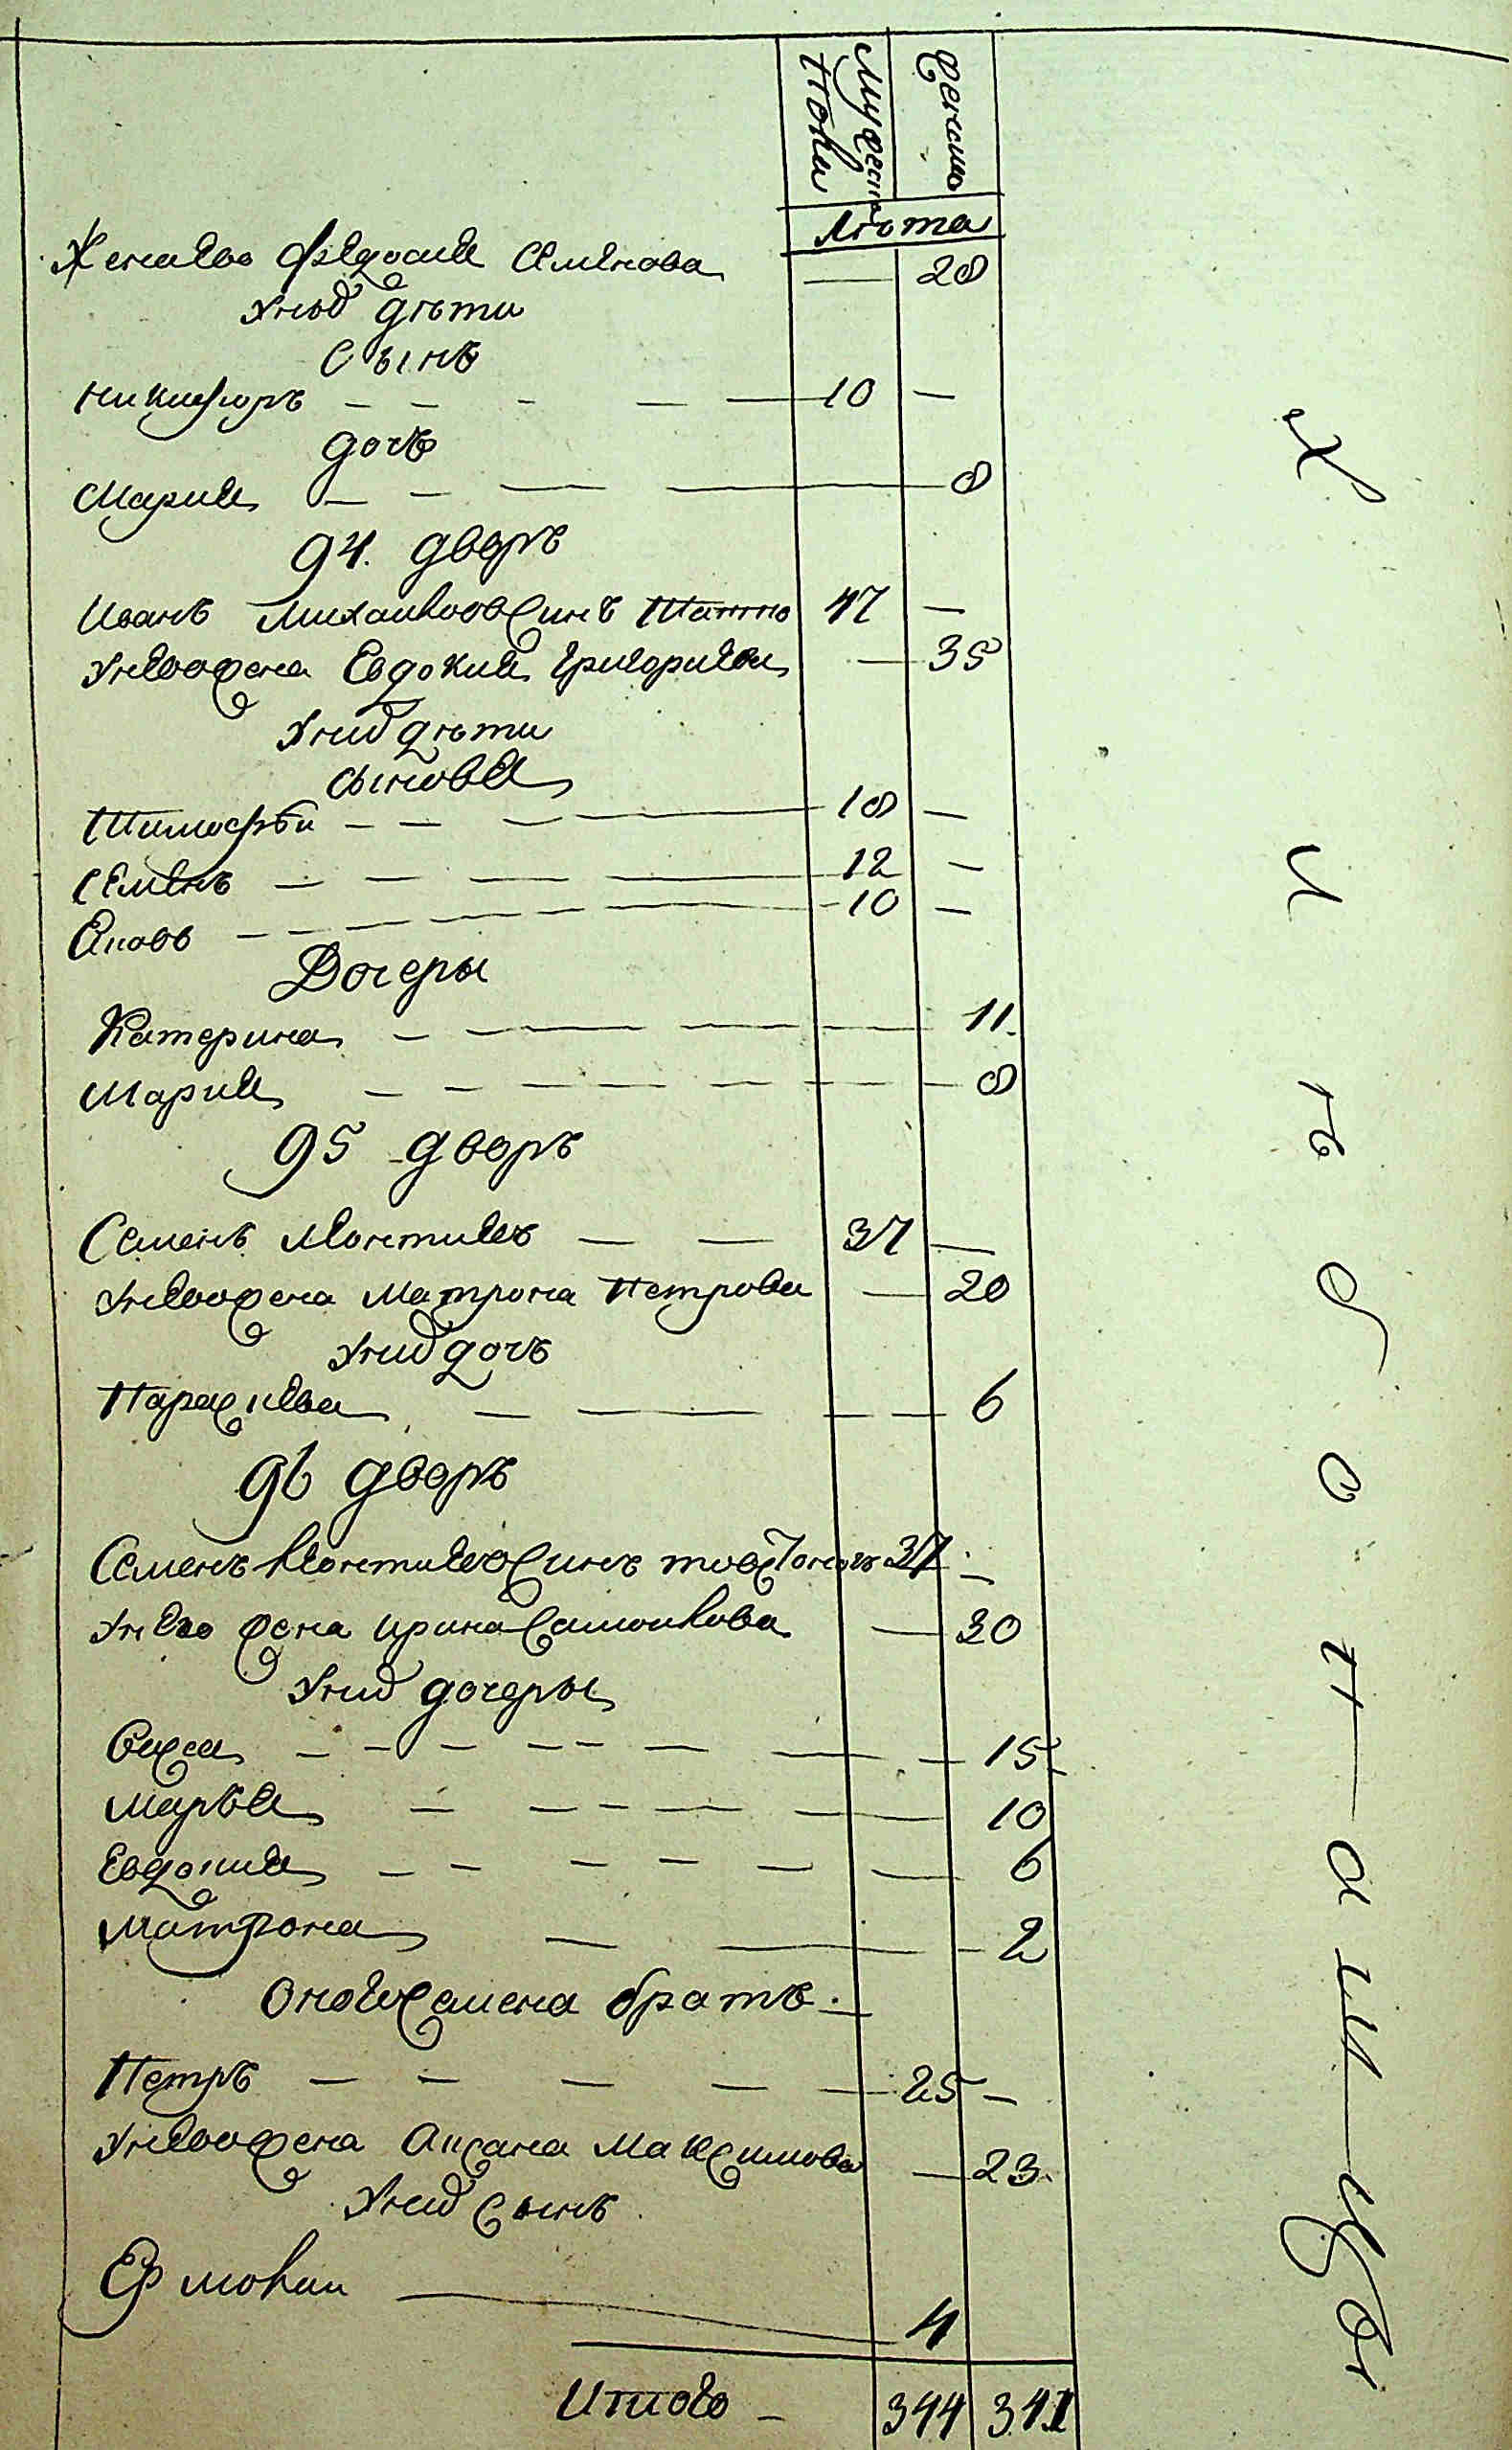 Мужеска
Пола
Женска
Лѣта
Жена его Федосия Семенова — 28
У нихъ дѣти
Сынъ
Никифоръ — 10 —
дочь
Мария — 8
94. дворъ
Иванъ Михайловъ синъ 47 —
У него жена Евдокия Григориева — 35
У них дѣти
сыновья
Тимофѣй — 18 —
Семенъ — 12 —
Яковъ — 10 —
Дочеры
Катерина — 11
Мария — 8
95 дворъ
Семенъ Леонтиевъ — 37 —
У него жена Матрона Петрова — 20
У них дочь
Параскева — 6
96 дворъ
Семенъ Леонтиевъ синъ 37 —
У него жена Ирина Самойлова — 30
У них дочеры
— 15
Марья — 10
Евдокия — 6
Матрона — 2
Оного Семена братъ
Петръ — 25 —
У него жена Аксана Максимова — 23
У них сынъ
Ермолай — 4
Итого — 344 341